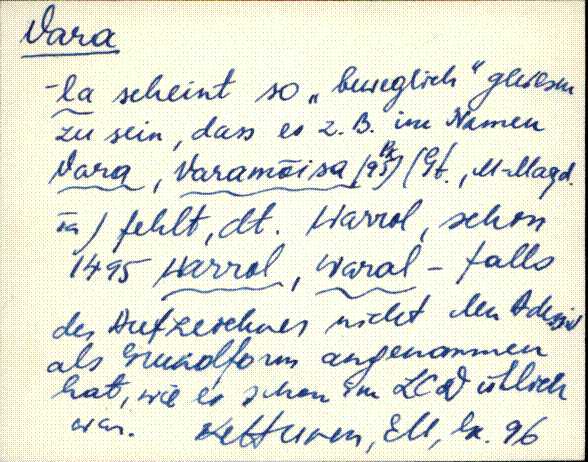 Vara
-la scheint so „beweglich“ gewesen
zu sein, dass es z. B. im Namen
Vara, Varamõisa (Gt., M-Magd.
fehlt, dt. Warrol, schon
1495 Warrol, Waral – falls
der Aufzeichner nicht den Adessiv
als Grundform angenommen
hat, wie es schon im LCD üblich
war. Kettunen, EM, lk. 96